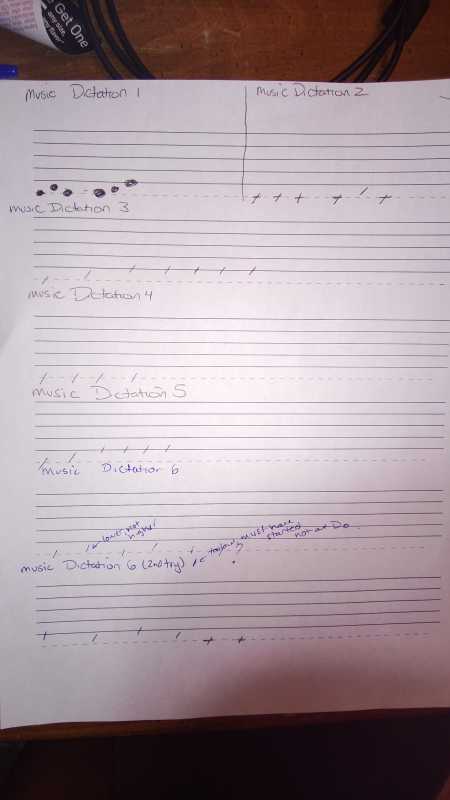 Get One
any size,
any flavor*
music Dictation 1
music Dictation 2
music Dictation 3
music Dictation 4
music Dictation 5
music Dictation 6
lower not
higher
too low, must have
started
not at Do.
?
music Dictation 6 (2nd try)